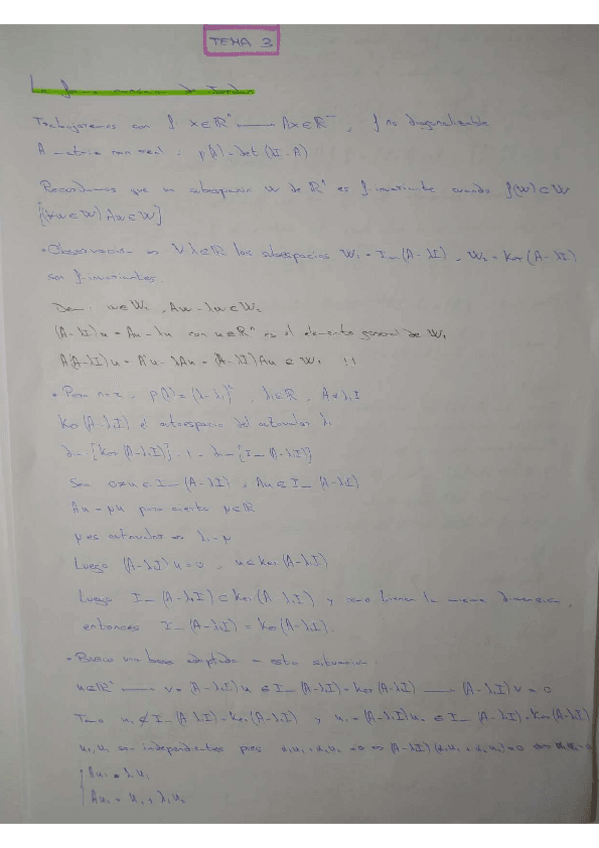 TEMA 3
La forma canónica de Jordan
Trabajaremos con f: x∈ℝⁿ → Ax∈ℝⁿ, f no diagonalizable
A matriz n×n real. p(λ)=det(λI-A)
Recordamos que un subespacio W de ℝⁿ es f-invariante cuando f(W)⊂W
[(∀u∈W) Au∈W]
• Observación ⇒ ∀λ∈ℝ los subespacios W₁=Im(A-λI), W₂=Ker(A-λI)
son f-invariantes.
Dem: u∈W₂, Au=λu∈W₂
(A-λI)u=Au-λu con u∈ℝⁿ es el elemento general de W₁
A(A-λI)u=A²u-λAu=(A-λI)Au∈W₁ !!
• Para n=2, p(λ)=(λ-λ₁)², λ₁∈ℝ, A≠λ₁I
Ker(A-λ₁I) el autoespacio del autovalor λ₁
dim{Ker(A-λ₁I)}=1=dim{Im(A-λ₁I)}
Sea 0≠u∈Im(A-λ₁I), Au∈Im(A-λ₁I)
Au=μu para cierto μ∈ℝ
μ es autovalor ⇒ λ₁=μ
Luego (A-λ₁I)u=0, u∈Ker(A-λ₁I)
Luego Im(A-λ₁I)⊂Ker(A-λ₁I) y como tienen la misma dimensión,
entonces Im(A-λ₁I)=Ker(A-λ₁I).
• Busco una base adaptada a esta situación:
u∈ℝ² → v=(A-λ₁I)u∈Im(A-λ₁I)=Ker(A-λ₁I) → (A-λ₁I)v=0
Tomo u₂∉Im(A-λ₁I)=Ker(A-λ₁I) y u₁=(A-λ₁I)u₂∈Im(A-λ₁I)=Ker(A-λ₁I)
u₁,u₂ son independientes pues α₁u₁+α₂u₂=0 ⇒ (A-λ₁I)(α₁u₁+α₂u₂)=0
Au₁=λ₁u₁
Au₂=u₁+λ₁u₂